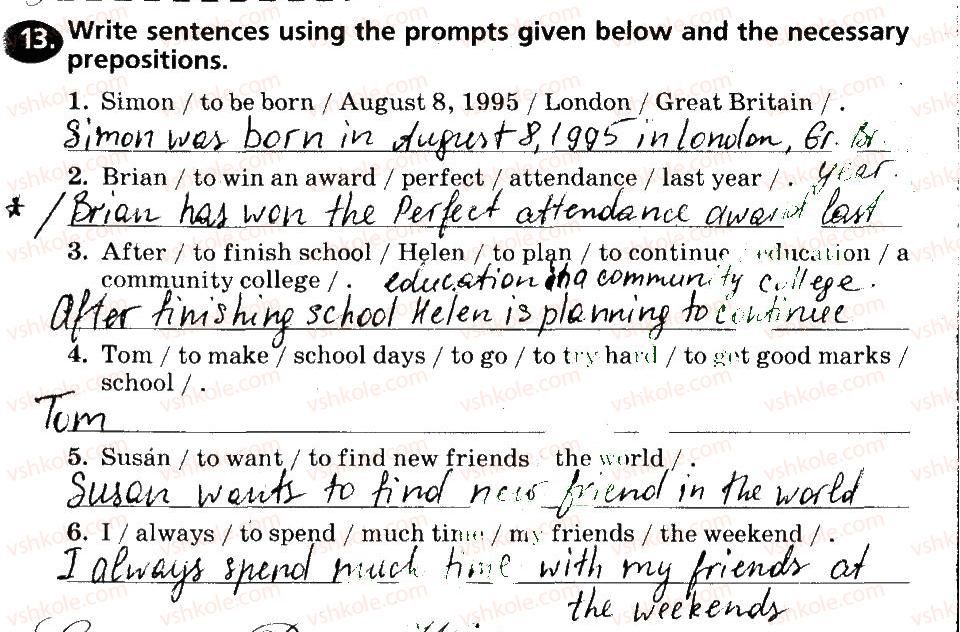 13. Write sentences using the prompts given below and the necessary
prepositions.
1. Simon / to be born / August 8, 1995 / London / Great Britain / .
Simon was born in August 8, 1995 in London, Gr. Br.
2. Brian / to win an award / perfect / attendance / last year / . year.
* / Brian has won the Perfect attendance award last
3. After / to finish school / Helen / to plan / to continue education / a
community college / . education in a community college.
After finishing school Helen is planning to continue
4. Tom / to make / school days / to go / to try hard / to get good marks /
school / .
Tom
5. Susan / to want / to find new friends the world / .
Susan wants to find new friend in the world
6. I / always / to spend / much time / my friends / the weekend / .
I always spend much time with my friends at
the weekends
vshkole.com